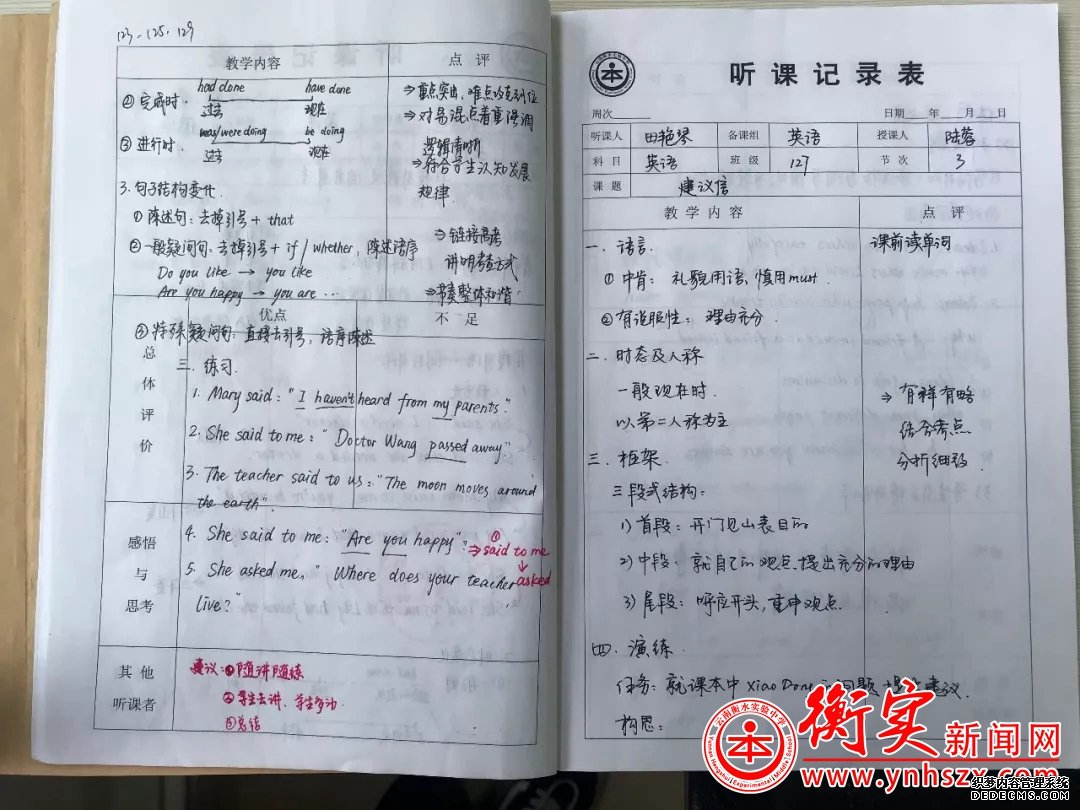 123-125.129
教学内容
点评
② 完成时. had done have done
过去 现在
③ 进行时. was/were doing be doing
过去 现在
3. 句子结构变化
① 陈述句:去掉引号 + that
② 一般疑问句:去掉引号 + if / whether, 陈述语序
Do you like → you like
Are you happy → you are ...
⇒ 重点突出、难点
⇒ 对易混点着重强调
逻辑清晰
⇒ 符合学生认知发展
规律
⇒ 链接高考
讲明考查方式
⇒ 节奏整体和谐
优点
不足
③ 特殊疑问句:直接去引号,语序陈述
总体评价
三. 练习.
1. Mary said: "I haven't heard from my parents."
2. She said to me: "Doctor Wang passed away"
3. The teacher said to us: "The moon moves around
the earth".
感悟
与
思考
4. She said to me: "Are you happy"? ⇒ ① said to me
↓
asked
5. She asked me, "Where does your teacher
live?"
其他
听课者
建议:① 随讲随练
② 学生去讲、学生多动
③ 总结
听课记录表
周次
日期 年 月 日
听课人 田艳琴 备课组 英语 授课人 陆蓉
科目 英语 班级 127 节次 3
课题 建议信
教学内容
点评
一. 语言.
课前读单词
① 中肯: 礼貌用语, 慎用must.
② 有说服性: 理由充分.
二. 时态及人称
一般现在时.
以第二人称为主
⇒ 有详有略
结合考点
分析细致.
三. 框架.
三段式结构:
1) 首段:开门见山表目的
2) 中段:就自己的观点提出充分的理由
3) 尾段:呼应开头,重申观点.
四. 演练.
任务:就课本中 Xiao Dong 的问题 提 建议.
构思:
云南衡水实验中学
Yunnan Hengshui Experimental Middle School
本
衡实新闻网
www.ynhszx.com
织梦内容管理系统
DEDECMS.COM